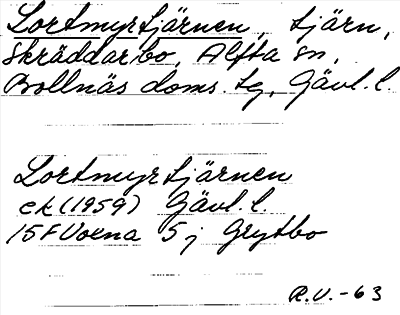 Lortmyrtjärnen, tjärn,
Skräddarbo, Alfta sn,
Bollnäs doms. tg, Gävl. l.
Lortmyrtjärnen
ek (1959) Gävl. l.
15F Voxna 5j Grytbo
R.V. -63